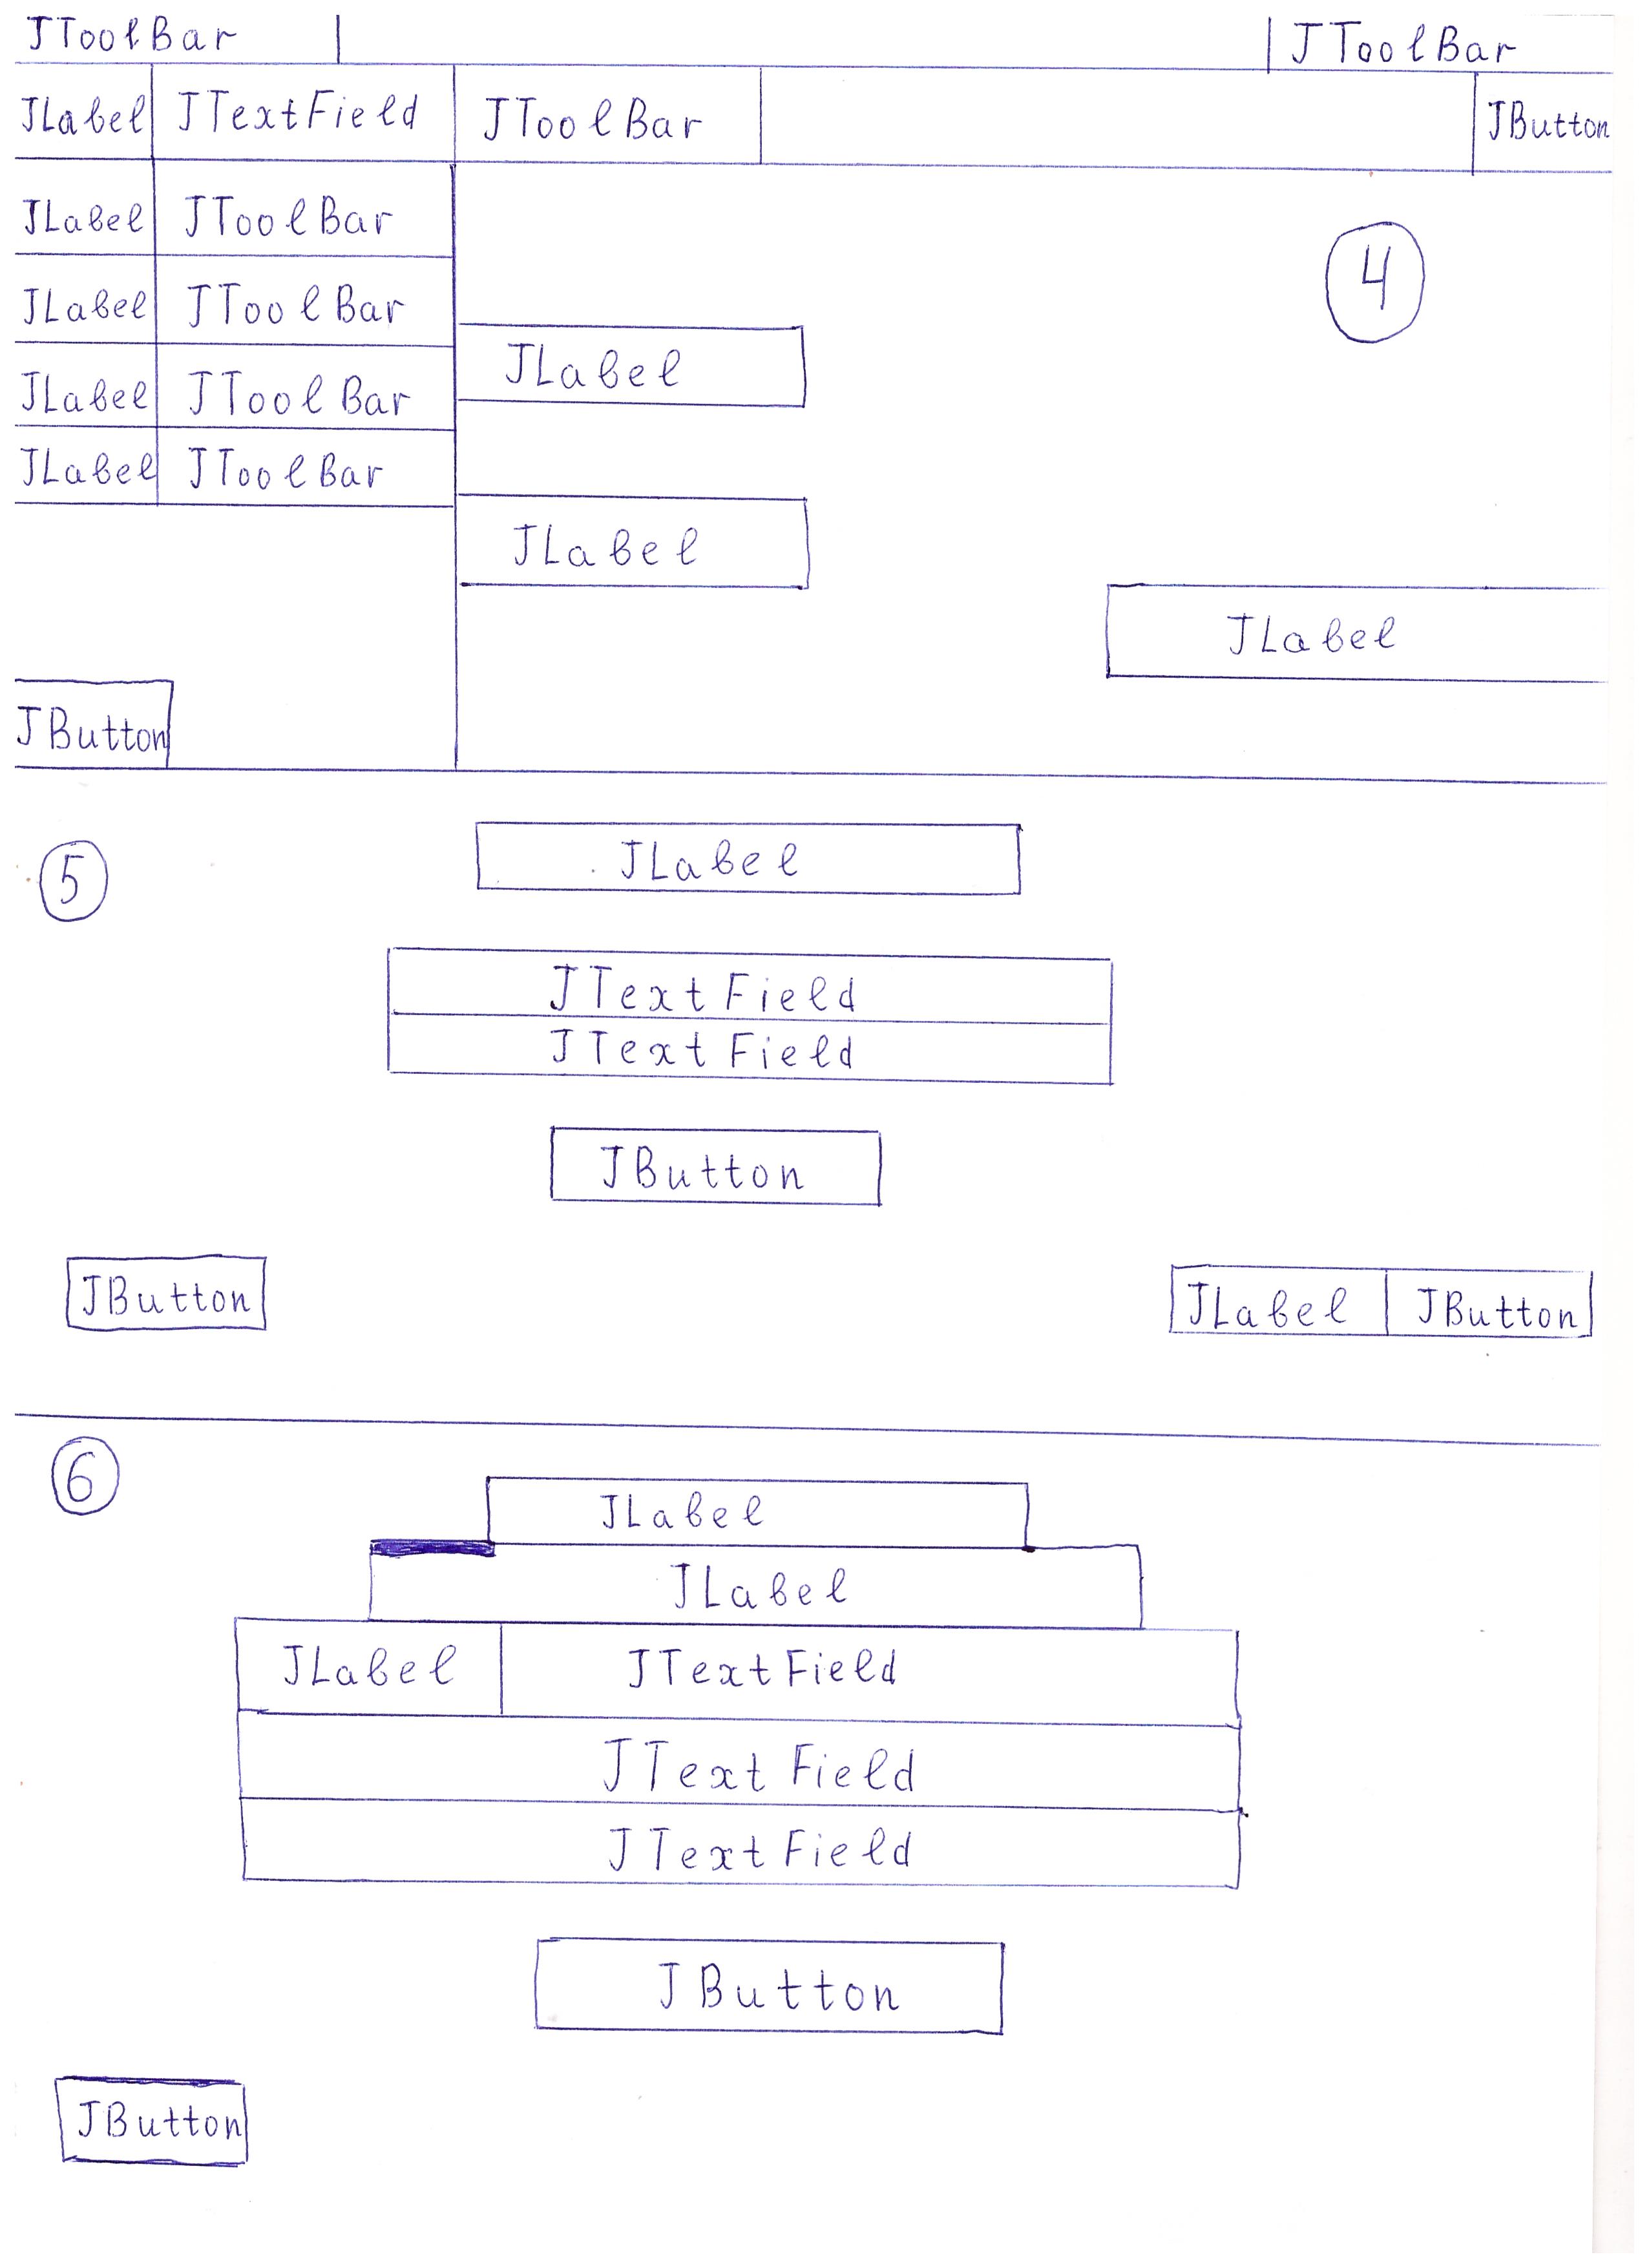 JToolBar JToolBar
JLabel JTextField JToolBar JButton
JLabel JToolBar
4
JLabel JToolBar
JLabel
JLabel JToolBar
JLabel JToolBar
JLabel
JLabel
JButton
5
JLabel
JTextField
JTextField
JButton
JButton JLabel JButton
6
JLabel
JLabel
JLabel JTextField
JTextField
JTextField
JButton
JButton